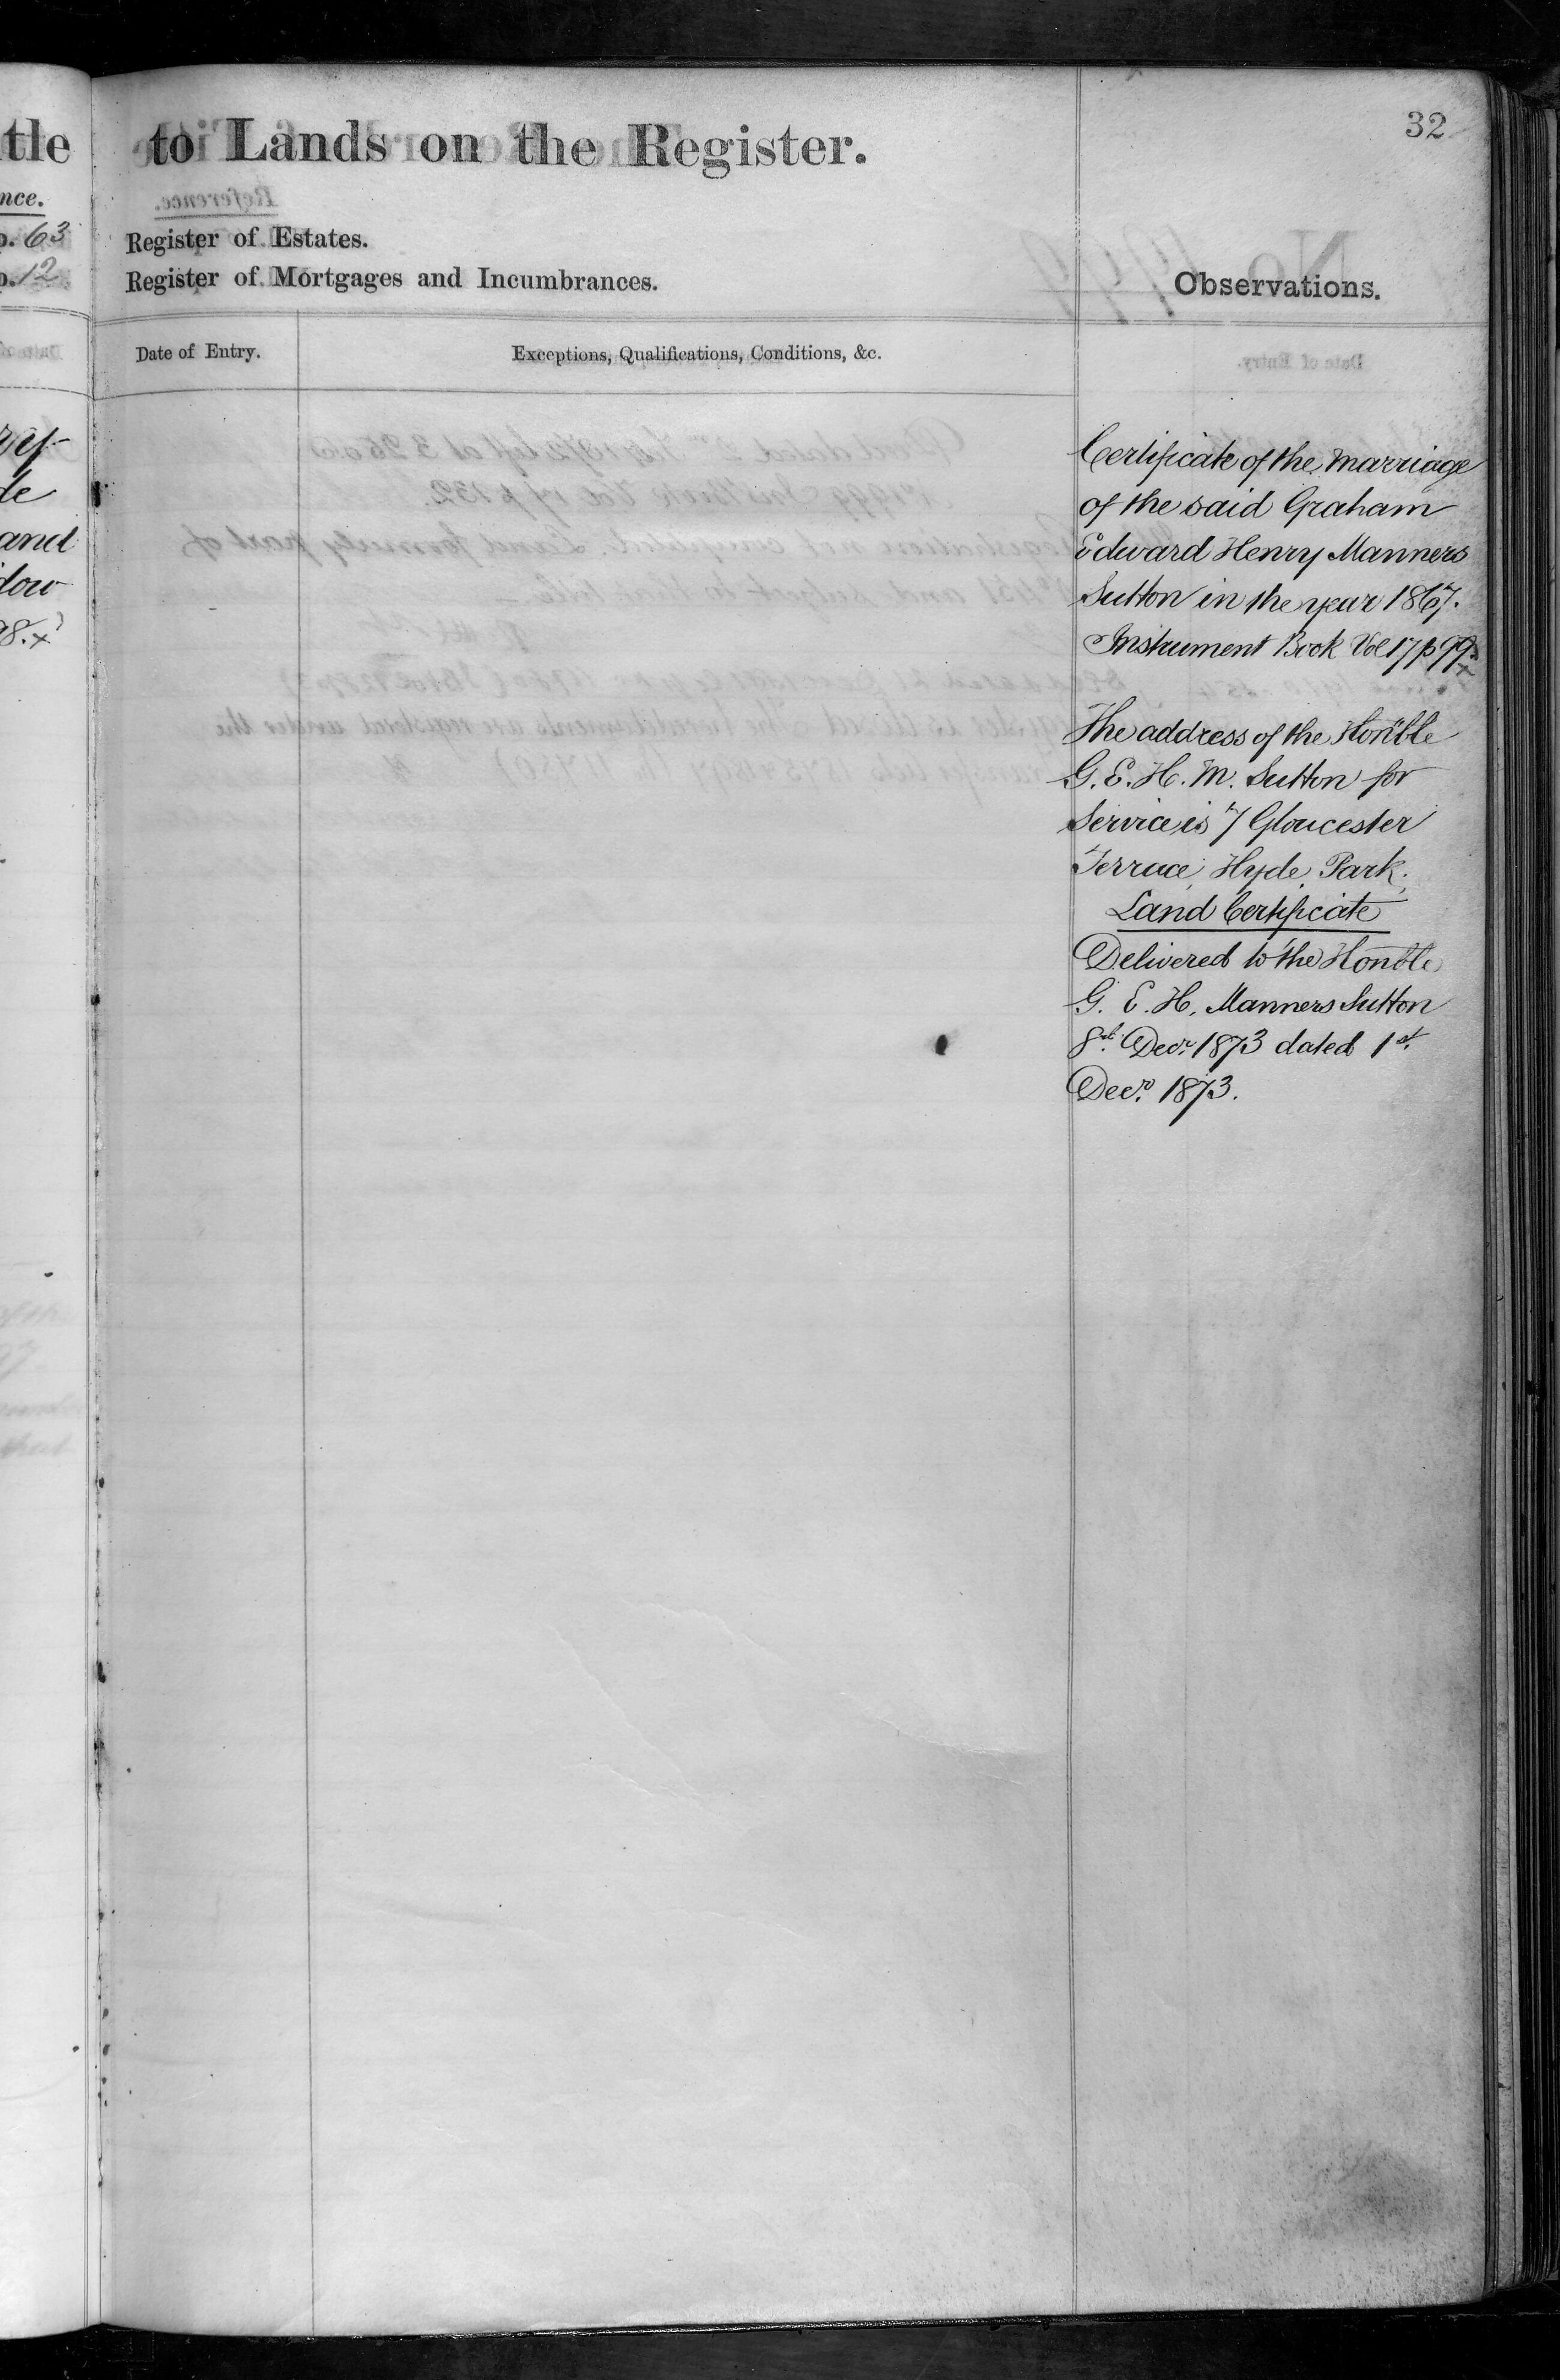 32
tle to Lands on the Register.
nce.
p. 63 Register of Estates.
p. 12 Register of Mortgages and Incumbrances.
Observations.
Date of Entry. Exceptions, Qualifications, Conditions, &c.
Certificate of the marriage
of the said Graham
Edward Henry Manners
Sutton in the year 1867.
Instrument Book Vol 17 p 99
The address of the Honble
G. E. H. M. Sutton for
Service is 7 Gloucester
Terrace, Hyde Park.
Land Certificate
Delivered to the Honble
G. E. H. Manners Sutton
Decr. 1873 dated 1st.
Decr. 1873.
and